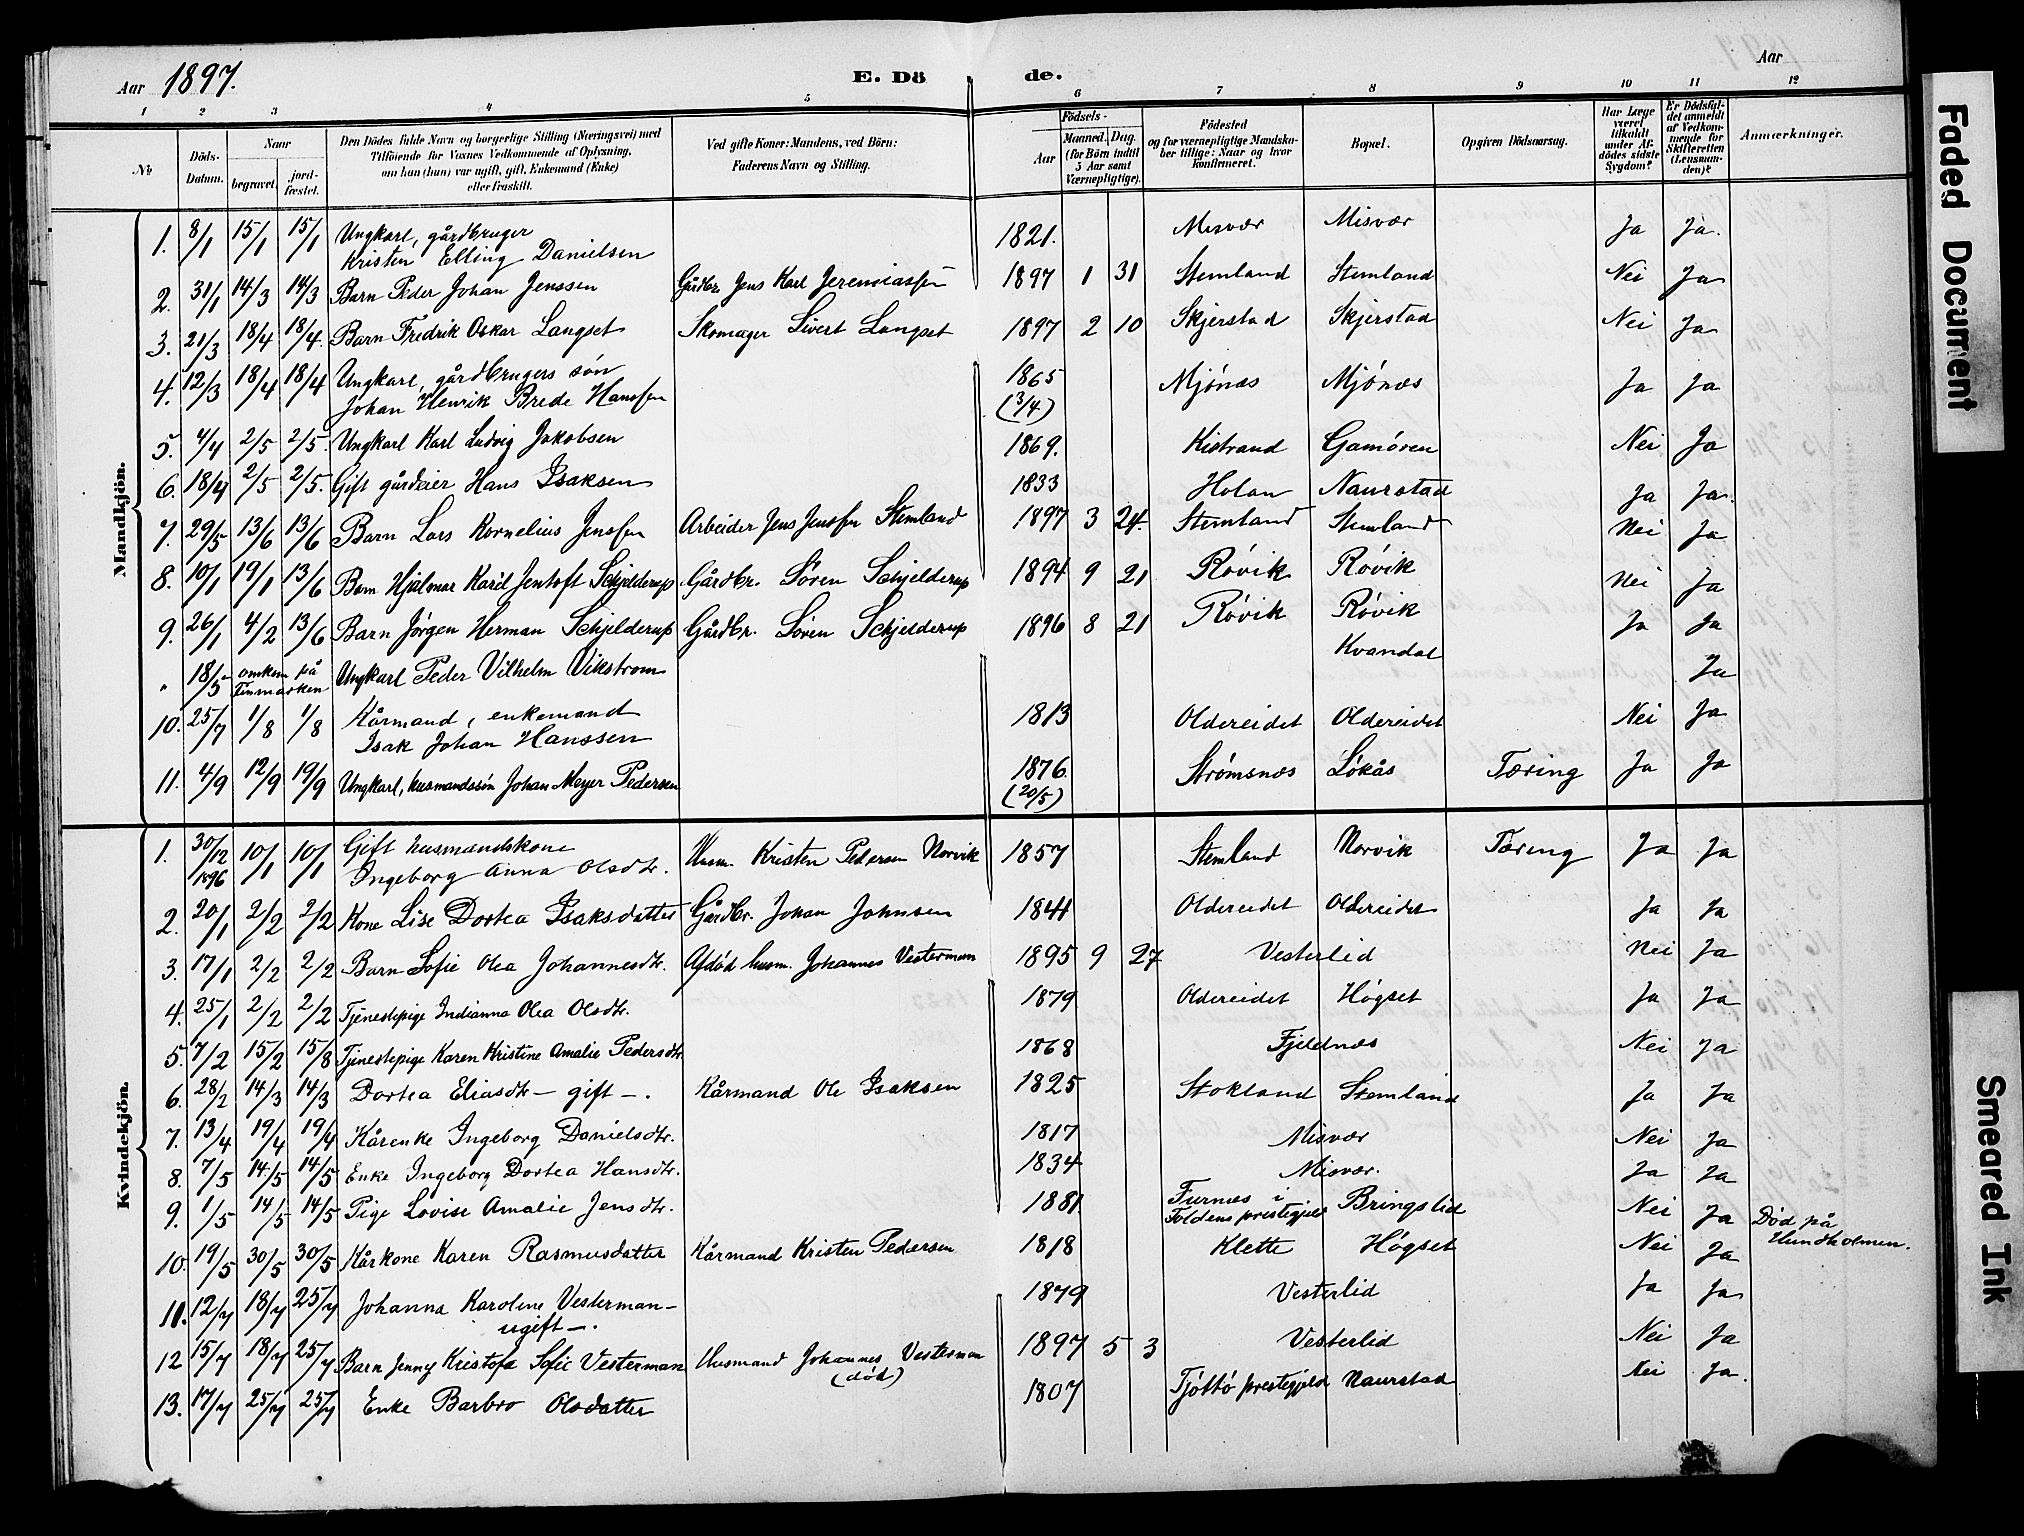 Aar 1897. E. Dö de. Aar
1 2 3 4 5 6 7 8 9 10 11 12
No Döds-Datum. Naar begravet. jord-fæstet. Den Dödes fulde Navn og borgerlige Stilling (Næringsvei) med Tilföiende for Voxnes Vedkommende af Oplysning, om han (hun) var ugift, gift, Enkemand (Enke) eller fraskilt. Ved gifte Koner: Mandens, ved Börn: Faderens Navn og Stilling. Födsels- Aar Maaned. Dag. (for Börn indtil 5 Aar samt Værnepligtige). Födested og for værnepligtige Mandskaber tillige: Naar og hvor konfirmeret. Bopæl. Opgiven Dödsaarsag. Har Læge været tilkaldt under Afdödes sidste Sygdom? Er Dödsfaldet anmeldt af Vedkommende for Skifteretten (Lensmanden)? Anmærkninger.
Mandkjön.
1. 8/1 15/1 15/1 Ungkarl, gårdbruger 1821. Misvær Misvær Ja Ja.
Kristen Elling Danielsen
2. 31/1 14/3 14/3 Barn Peder Johan Jenssen Gårdbr Jens Karl Jeremiassen 1897 1 31 Stemland Stemland Nei Ja
3. 21/3 18/4 18/4. Barn Fredrik Oskar Langset Skomager Sivert Langset 1897 2 10 Skjerstad Skjerstad Nei Ja
4. 12/3 18/4 18/4 Ungkarl, gårdbrugers søn 1865 Mjónæs Mjónæs Ja Ja
Johan Henrik Brede Hanssen (3/4)
5. 4/4 2/5 2/5. Ungkarl Karl Ludvig Jakobsen 1869. Kistrand Gamóren Nei Ja
6. 18/4 2/5 2/5. Gift gårdeier Hans Isaksen 1833 Holan Naurstad Ja Ja.
7. 29/5 13/6 13/6 Barn Lars Kornelius Jenssen Arbeider Jens Jenssen Stemland 1897 3 24. Stemland Stemland Nei Ja
8. 10/1 19/1 13/6 Barn Hjalmar Karil Jentoft Schjelderup Gårdbr. Søren Schjelderup 1894 9 21 Róvik Róvik Nei Ja
9. 26/1 4/2 13/6 Barn Jørgen Herman Schjelderup Gårdbr. Søren Schjelderup 1896 8 21 Róvik Róvik Ja Ja
" 18/5 omkom på Finmarken Ungkarl Peder Vilhelm Vikstrom Kvandal Ja
10. 25/7 1/8 1/8 Kårmand, enkemand 1813 Oldereidet Oldereidet Nei Ja
Isak Johan Hanssen
11. 4/9 12/9 19/9 Ungkarl, husmandssón Johan Meyer Pedersen 1876. (20/5) Strómsnæs Lókås Tæring Ja Ja
Kvindekjön.
1. 30/12 1896 10/1 10/1 Gift husmandskone Husm. Kristen Pedersen Norvik 1857 Stemland Norvik Tæring Ja Ja
Ingeborg Anna Olsdtr.
2. 20/1 2/2 2/2 Kone Lise Dortea Isaksdatter Gårdbr. Johan Johnsen 1844 Oldereidet Oldereidet Ja Ja
3. 17/1 2/2 2/2 Barn Sofie Olea Johannesdtr. Afdód husm. Johannes Vesterman 1895 9 27 Vesterlid Nei Ja
4. 25/1 2/2 2/2 Tjenestepige Indianna Olea Olsdtr. 1879 Oldereidet Hógset Ja Ja
5. 7/2 15/2 15/8 Tjenestepige Karen Kristine Amalie Pedersdtr 1868 Fjeldnæs Nei Ja
6. 28/2 14/3 14/3 Dortea Eliasdtr – gift –. Kårmand Ole Isaksen 1825 Stokland Stemland Ja Ja
7. 13/4 19/4 19/4 Kårenke Ingeborg Danielsdtr. 1817 Misvær Nei Ja
8. 7/5 14/5 14/5 Enke Ingeborg Dortea Hansdtr. 1834 Misvær. Ja Ja
9. 1/5 14/5 14/5 Pige Lovise Amalie Jensdtr. 1881 Furnæs i Foldens prestegjeld Bringslid Nei Ja Død på Hundholmen.
10. 19/5 30/5 30/5 Kårkone Karen Rasmusdatter Kårmand Kristen Pedersen 1818 Klette Hógset Nei Ja
11. 12/7 18/7 25/7 Johanna Karoline Vesterman – 1879 Vesterlid Ja Ja
ugift –.
12 15/7 18/7 25/7 Barn Jenny Kristofa Sofie Vesterman Husmand Johannes Vesterman (død) 1897 5 3 Vesterlid Nei Ja
13. 17/7 25/7 25/7 Enke Barbro Olsdatter 1807 Tjóttó prestegjeld Naurstad Nei Ja.
Faded Document
Smeared Ink